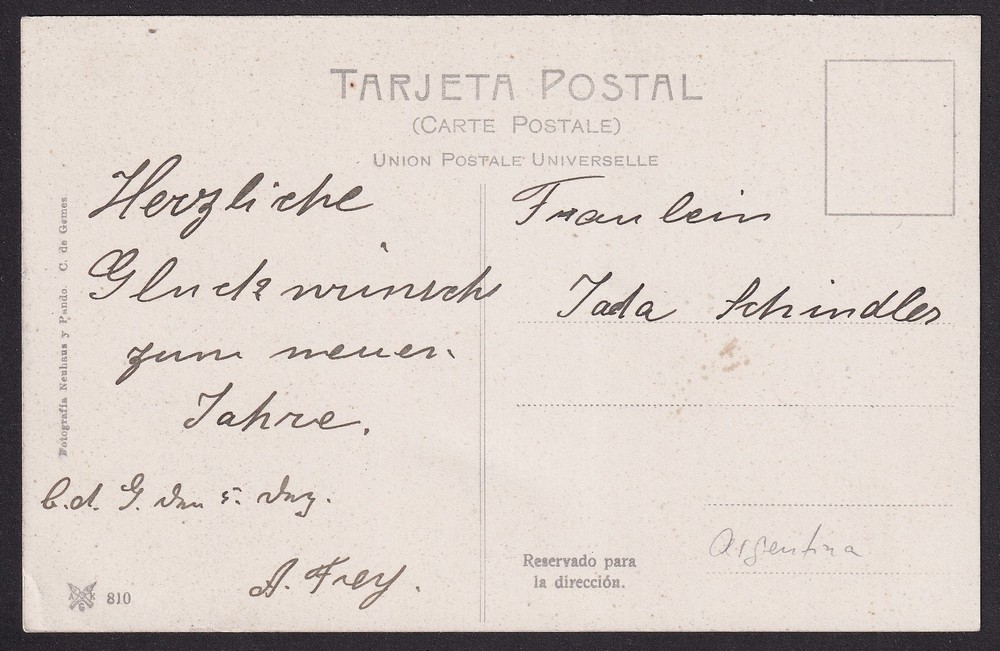 TARJETA POSTAL
(CARTE POSTALE)
UNION POSTALE UNIVERSELLE
Herzliche
Gluckwünsch
zum neuen
Jahre.
C. d. G. den 5. Dez.
A. Frey.
Fraulein
Jada Schindler
Argentina
Reservado para
la dirección.
Fotografía Neuhaus y Pando. C. de Gomes.
810